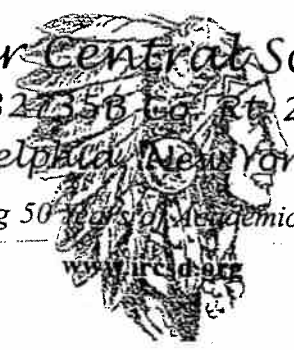 r Central Sc
32735B Co. Rt. 2
elphia, New York
g 50 Years of Academic
www.ircsd.org